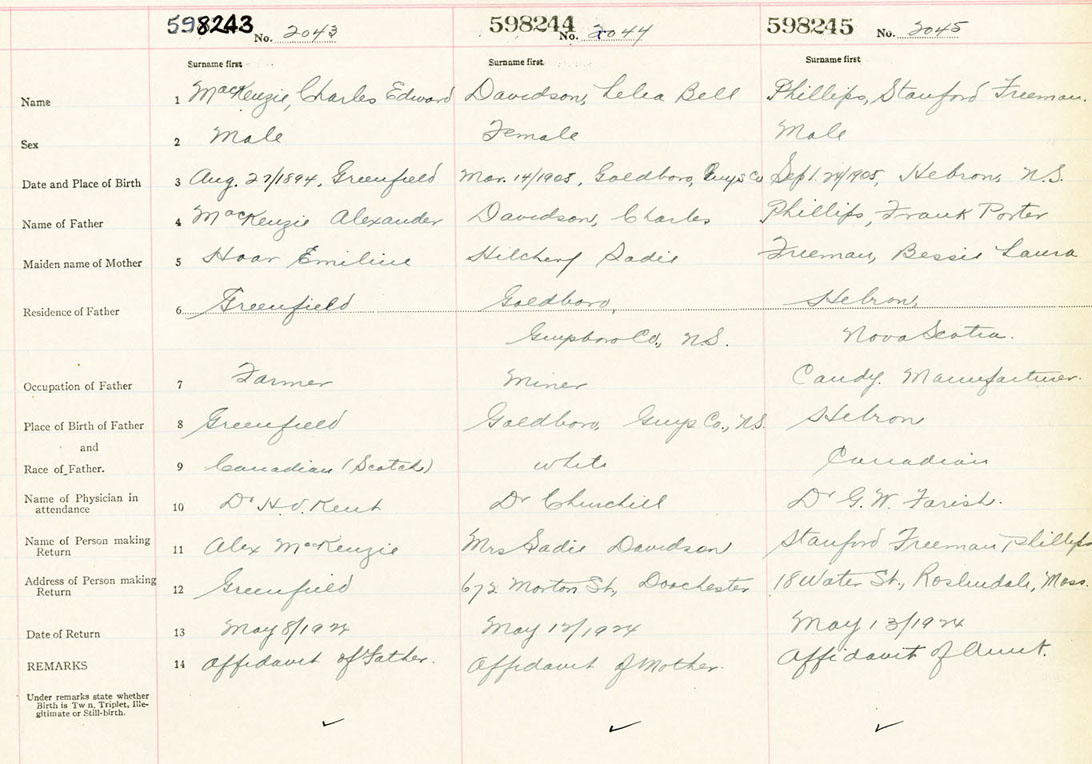 598243 No. 2043 598244 No. 2044 598245 No. 2045
Surname first Surname first Surname first
Name 1 MacKenzie, Charles Edward Davidson, Lelia Bell Phillips, Stanford Freeman.
Sex 2 Male Female Male
Date and Place of Birth 3 Aug. 27/1894, Greenfield Mar. 14/1905, Goldboro, Guys Co Sept. 24/1905, Hebron, N.S.
Name of Father 4 MacKenzie Alexander Davidson, Charles Phillips, Frank Porter
Maiden name of Mother 5 Hoar Emiline Sadie Freeman, Bessie Laura
Residence of Father 6 Greenfield Goldboro, Hebron,
Guysboro Co., N.S. Nova Scotia.
Occupation of Father 7 Farmer Miner Candy. Manufacturer.
Place of Birth of Father 8 Greenfield Goldboro, Guys Co., N.S. Hebron
and
Race of Father. 9 Canadian (Scotch) white Canadian
Name of Physician in
attendance 10 Dr H.V. Kent Dr Churchill Dr G.W. Farish.
Name of Person making
Return 11 Alex MacKenzie Mrs Sadie Davidson Stanford Freeman Phillips
Address of Person making
Return 12 Greenfield 672 Morton St., Dorchester 18 Water St., Roslindale, Mass.
Date of Return 13 May 8/1924 May 12/1924 May 13/1924
REMARKS 14 Affidavit of Father. Affidavit of Mother. Affidavit of Aunt.
Under remarks state whether
Birth is Tw n, Triplet, Ille-
gitimate or Still-birth.